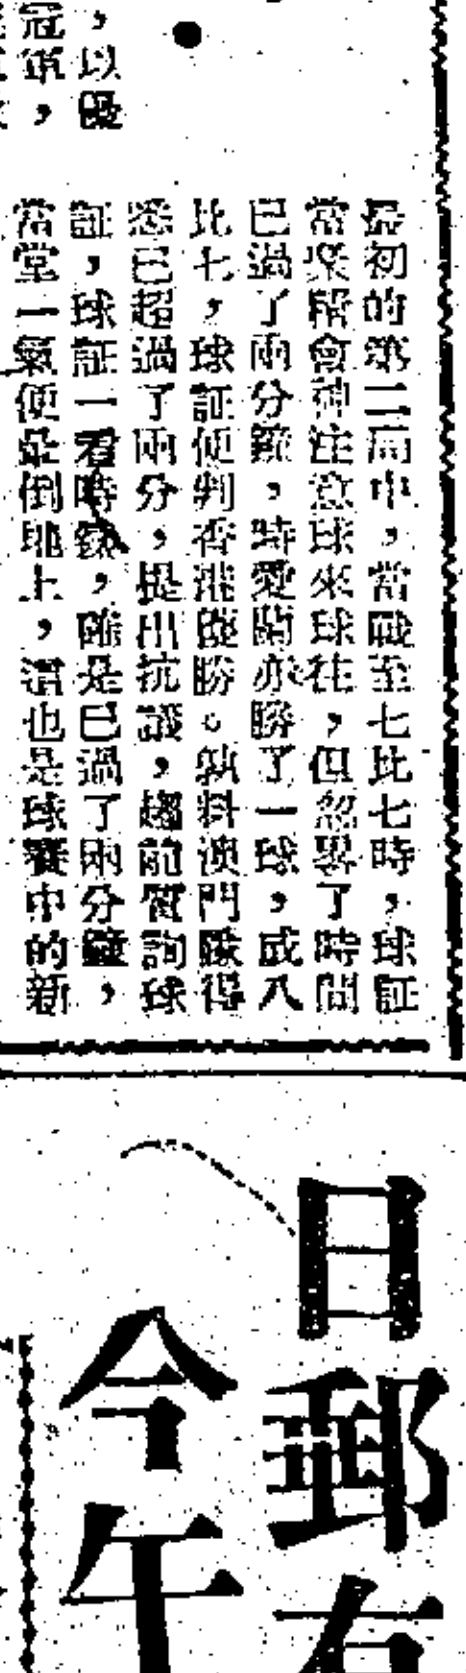 最初的第二局中，當戰至七比七時，球証
常聚精會神注意球來球往，但忽畧了時間
已過了兩分鐘，時愛蘭亦勝了一球，成八
比七，球証便判香港隊勝。孰料澳門隊得
悉已超過了兩分，提出抗議，趨前質詢球
証，球証一看時錶，確是已過了兩分鐘，
當堂一氣便是倒地上，這也是球賽中的新
，以優
冠軍，
日郵有
今午